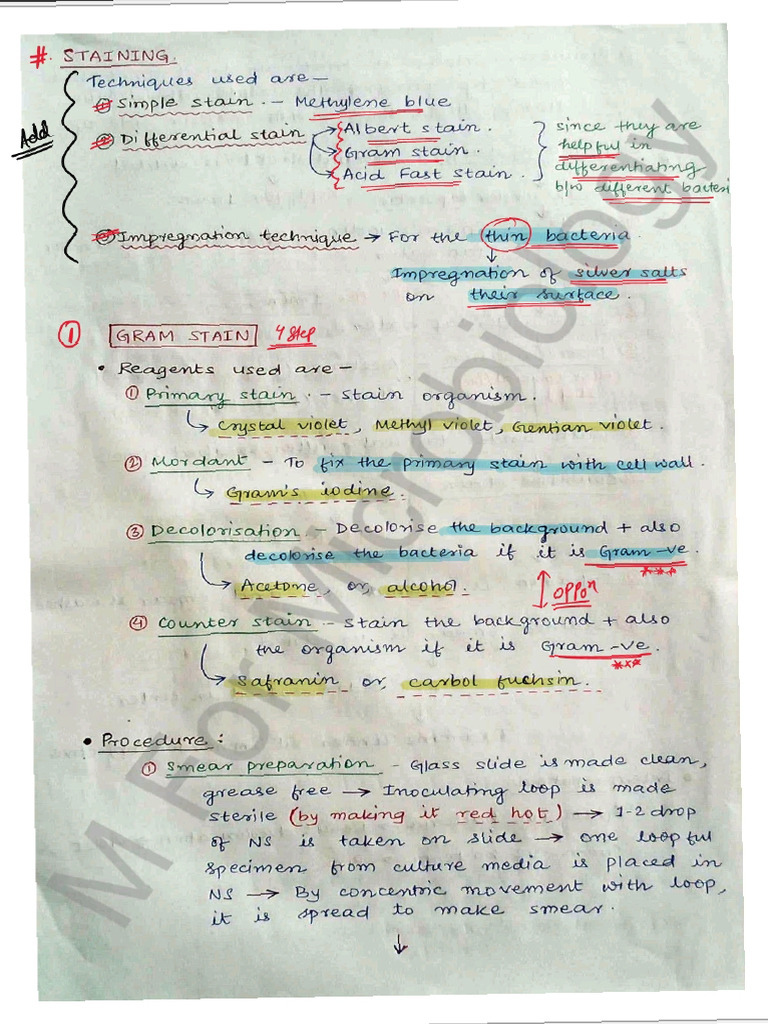 # STAINING.
Techniques used are —
① Simple stain. - Methylene blue
Add
② Differential stain
Albert stain.
Gram stain.
Acid Fast Stain.
since they are
helpful in
differentiating
b/w different bacteri
③ Impregnation technique → For the thin bacteria.
↓
Impregnation of silver salts
on their surface.
① GRAM STAIN 4 step
• Reagents used are —
① Primary stain. - stain organism.
↳ Crystal violet, Methyl violet, Gentian violet.
② Mordant - To fix the primary stain with cell wall.
↳ Gram's iodine.
③ Decolorisation - Decolorise the background + also
decolorise the bacteria if it is Gram -ve.
***
↳ Acetone, or, alcohol.
↕ oppon
④ Counter stain - stain the background + also
the organism if it is Gram -ve.
***
↳ Safranin or, carbol fuchsin.
• Procedure:
① Smear preparation - Glass slide is made clean,
grease free → Inoculating loop is made
sterile (by making it red hot) → 1-2 drop
of NS is taken on slide → one loopful
specimen from culture media is placed in
NS → By concentric movement with loop,
it is spread to make smear.
↓
M For Microbiology